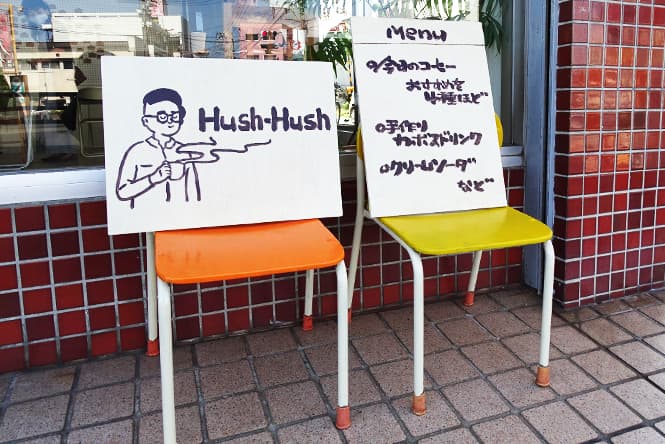 Hush-Hush
Menu
○今日のコーヒー
おすすめを
4種ほど
○手作り
カボスドリンク
○クリームソーダ
など